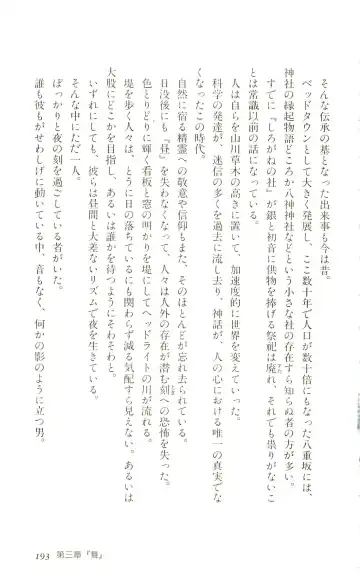 そんな伝承の基となった出来事も今は昔。
ベッドタウンとして大きく発展し、ここ数十年で人口が数十倍にもなった八重坂には、
神社の縁起物語どころか八神神社などという小さな社の存在すら知らぬ者の方が多い。
すでに『しろがねの社』が銀と初音に供物を捧げる祭祀は廃れ、それでも祟りがないこ
とは常識以前の話になっている。
人は自らを山川草木の高きに置いて、加速度的に世界を変えていった。
科学の発達が、迷信の多くを過去に流し去り、神話が、人の心における唯一の真実でな
くなったこの時代。
自然に宿る精霊への敬意や信仰もまた、そのほとんどが忘れ去られている。
日没後にも『昼』を失わなくなって、人々は人外の存在が潜む刻への恐怖を失った。
色とりどりに輝く看板と窓の明かりを堤にしてヘッドライトの川が流れる。
堤を歩く人々は、とうに日の落ちているにも関わらず減る気配すら見えない。あるいは
大股にどこかを目指し、あるいは誰かを待つようにそわそわと。
いずれにしても、彼らは昼間と大差ないリズムで夜を生きている。
そんな中にただ一人。
ぽっかりと夜の刻を過ごしている者がいた。
誰も彼もがせわしげに動いている中、音もなく、何かの影のように立つ男。
193 第三章『聲』